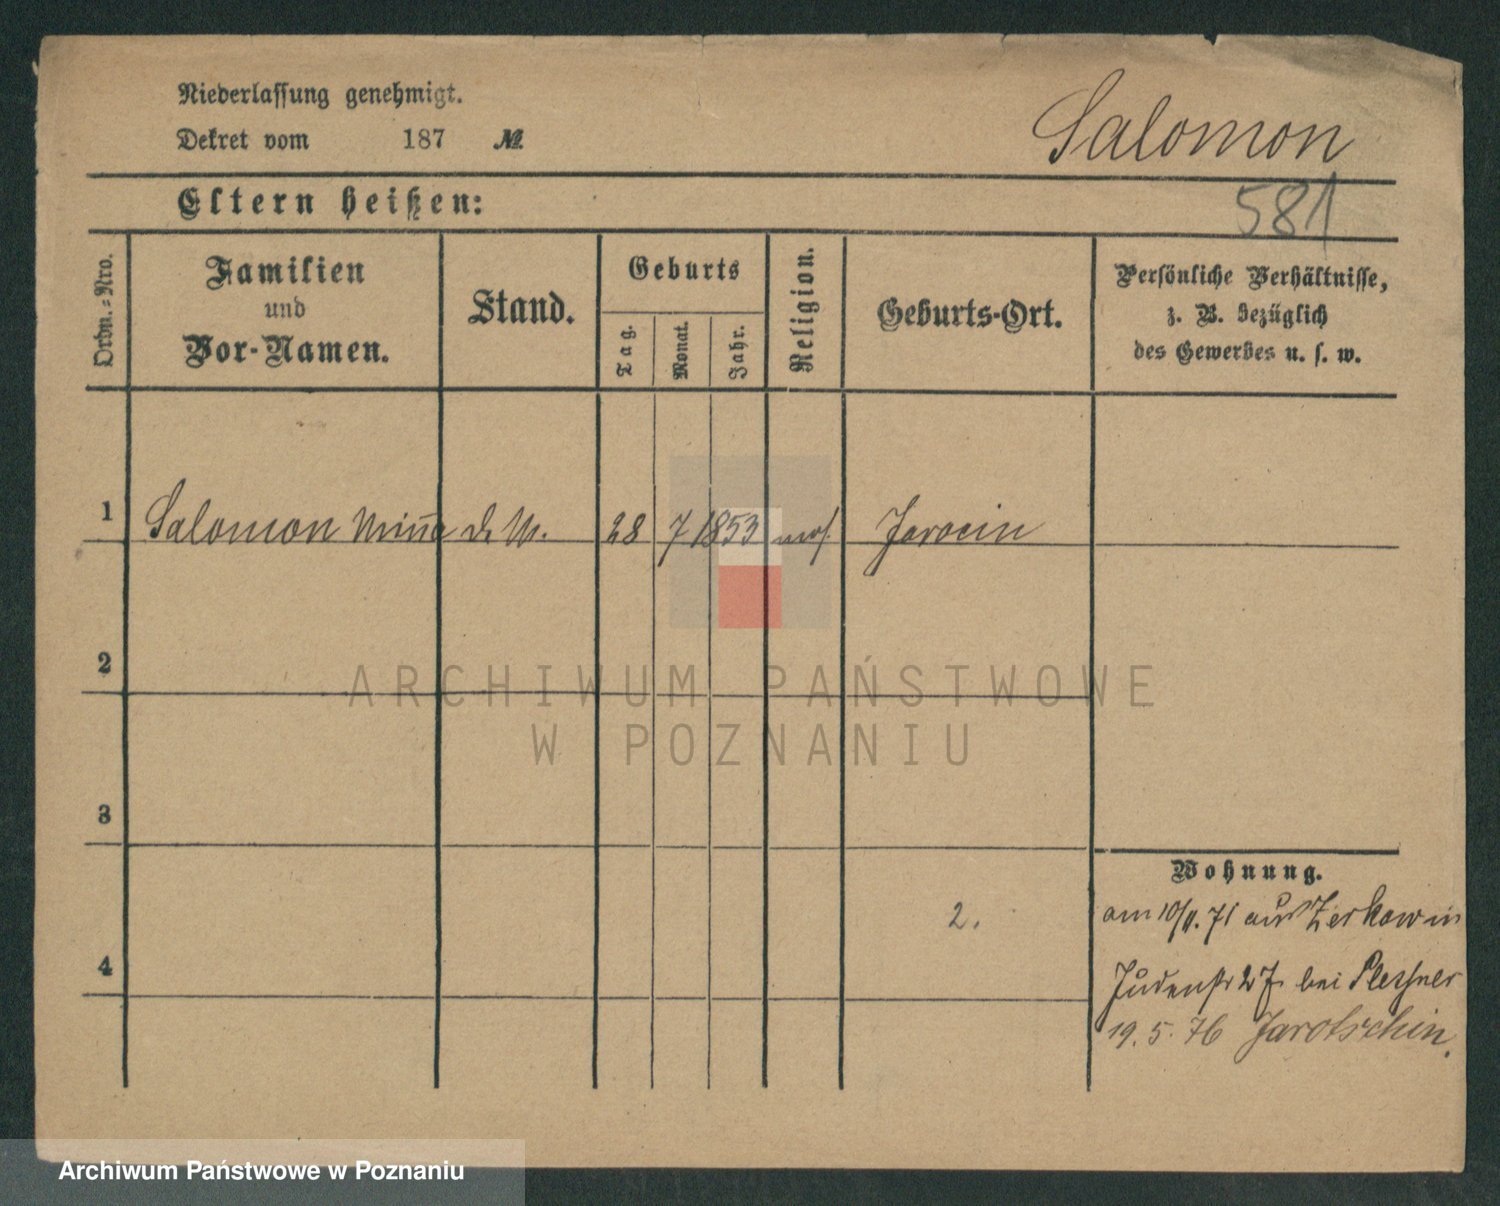 Niederlassung genehmigt.
Dekret vom 187 №
Salomon
Eltern heißen:
581
Ordn.-Nro.
Familien
und
Vor-Namen.
Stand.
Geburts
Tag.
Monat.
Jahr.
Religion.
Geburts-Ort.
Persönliche Verhältnisse,
z. B. bezüglich
des Gewerbes u. s. w.
1 Salomon 28 7 1853 mos. Jarocin
2
ARCHIWUM PAŃSTWOWE
W POZNANIU
3
Wohnung.
2.
am aus Zerkow in
4
bei Pleschner
19. 5. 76 Jarotschin.
Archiwum Państwowe w Poznaniu